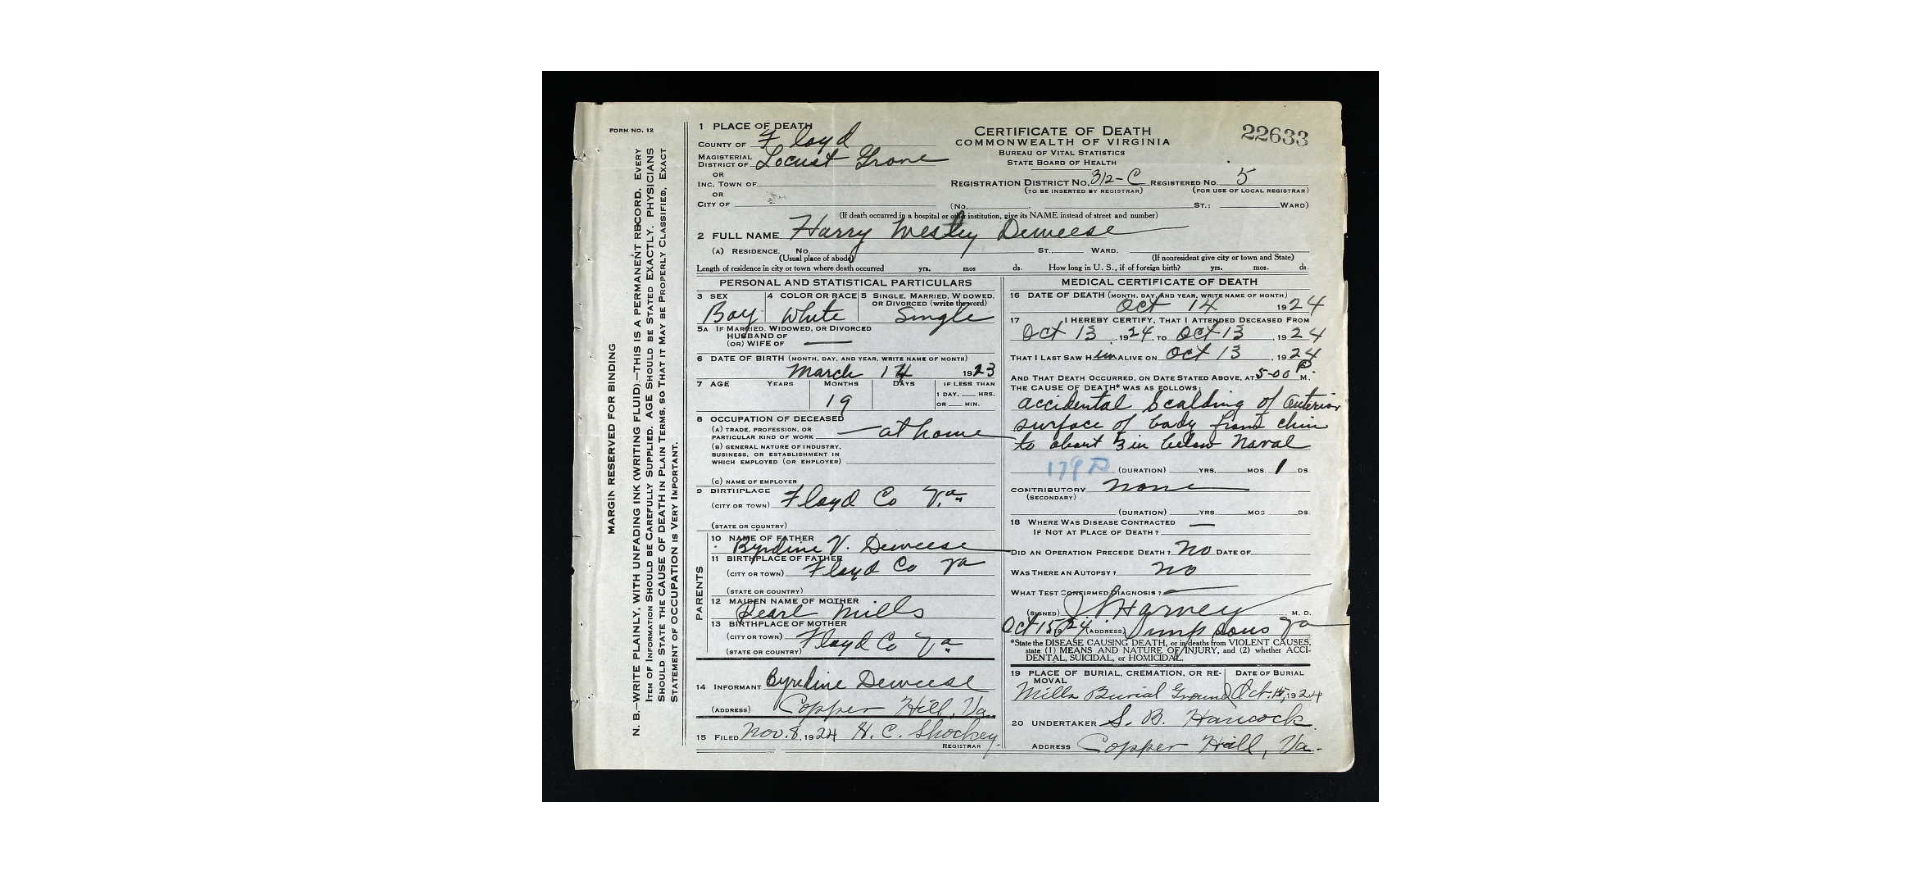 FORM NO. 12
MARGIN RESERVED FOR BINDING
N. B.—WRITE PLAINLY, WITH UNFADING INK (WRITING FLUID).—THIS IS A PERMANENT RECORD. EVERY
ITEM OF INFORMATION SHOULD BE CAREFULLY SUPPLIED. AGE SHOULD BE STATED EXACTLY. PHYSICIANS
SHOULD STATE THE CAUSE OF DEATH IN PLAIN TERMS, SO THAT IT MAY BE PROPERLY CLASSIFIED. EXACT
STATEMENT OF OCCUPATION IS VERY IMPORTANT.
1 PLACE OF DEATH
COUNTY OF Floyd
MAGISTERIAL
DISTRICT OF Locust Grove
OR
INC. TOWN OF
OR
CITY OF
CERTIFICATE OF DEATH
COMMONWEALTH OF VIRGINIA
BUREAU OF VITAL STATISTICS
STATE BOARD OF HEALTH
22633
REGISTRATION DISTRICT NO. 312-C REGISTERED NO. 5
(TO BE INSERTED BY REGISTRAR) (FOR USE OF LOCAL REGISTRAR)
(No. ST.; WARD)
(If death occurred in a hospital or other institution, give its NAME instead of street and number)
2 FULL NAME Harry Wesley Deweese
(A) RESIDENCE. No. ST. WARD.
(Usual place of abode) (If nonresident give city or town and State)
Length of residence in city or town where death occurred yrs. mos ds. How long in U. S., if of foreign birth? yrs. mos. ds.
PERSONAL AND STATISTICAL PARTICULARS
3 SEX 4 COLOR OR RACE 5 SINGLE, MARRIED, WIDOWED, OR DIVORCED (write the word)
Boy White Single
5A IF MARRIED, WIDOWED, OR DIVORCED
HUSBAND OF
(OR) WIFE OF
6 DATE OF BIRTH (MONTH, DAY, AND YEAR, WRITE NAME OF MONTH)
March 14 1923
7 AGE YEARS MONTHS DAYS IF LESS THAN
1 DAY, HRS.
OR MIN.
19
8 OCCUPATION OF DECEASED
(A) TRADE, PROFESSION, OR
PARTICULAR KIND OF WORK at home
(B) GENERAL NATURE OF INDUSTRY,
BUSINESS, OR ESTABLISHMENT IN
WHICH EMPLOYED (OR EMPLOYER)
(C) NAME OF EMPLOYER
9 BIRTHPLACE
(CITY OR TOWN) Floyd Co Va
(STATE OR COUNTRY)
PARENTS
10 NAME OF FATHER
Byrdine V. Deweese
11 BIRTHPLACE OF FATHER
(CITY OR TOWN) Floyd Co Va
(STATE OR COUNTRY)
12 MAIDEN NAME OF MOTHER
Pearl Mills
13 BIRTHPLACE OF MOTHER
(CITY OR TOWN) Floyd Co Va
(STATE OR COUNTRY)
14 INFORMANT Byrdine Deweese
(ADDRESS) Copper Hill, Va.
15 FILED Nov. 8, 1924 H. C. Shockey
REGISTRAR
MEDICAL CERTIFICATE OF DEATH
16 DATE OF DEATH (MONTH, DAY, AND YEAR, WRITE NAME OF MONTH)
Oct 14 1924
17 I HEREBY CERTIFY, THAT I ATTENDED DECEASED FROM
Oct 13, 1924, TO Oct 13, 1924
THAT I LAST SAW Him ALIVE ON Oct 13, 1924
AND THAT DEATH OCCURRED, ON DATE STATED ABOVE, AT 5-00 P M.
THE CAUSE OF DEATH* WAS AS FOLLOWS:
accidental Scalding of Anterior
surface of body from chin
to about 3 in below Naval
179 (DURATION) YRS. MOS. 1 DS.
CONTRIBUTORY none
(SECONDARY)
(DURATION) YRS. MOS. DS.
18 WHERE WAS DISEASE CONTRACTED
IF NOT AT PLACE OF DEATH?
DID AN OPERATION PRECEDE DEATH? No DATE OF
WAS THERE AN AUTOPSY? No
WHAT TEST CONFIRMED DIAGNOSIS?
(SIGNED) Harvey M. D.
Oct 15, 24 (ADDRESS) Simpsons Va
*State the DISEASE CAUSING DEATH, or in deaths from VIOLENT CAUSES,
state (1) MEANS AND NATURE OF INJURY, and (2) whether ACCI-
DENTAL, SUICIDAL, or HOMICIDAL.
19 PLACE OF BURIAL, CREMATION, OR RE- DATE OF BURIAL
MOVAL
Mills Burial Ground Oct. 15, 1924
20 UNDERTAKER S. B. Hancock
ADDRESS Copper Hill, Va.